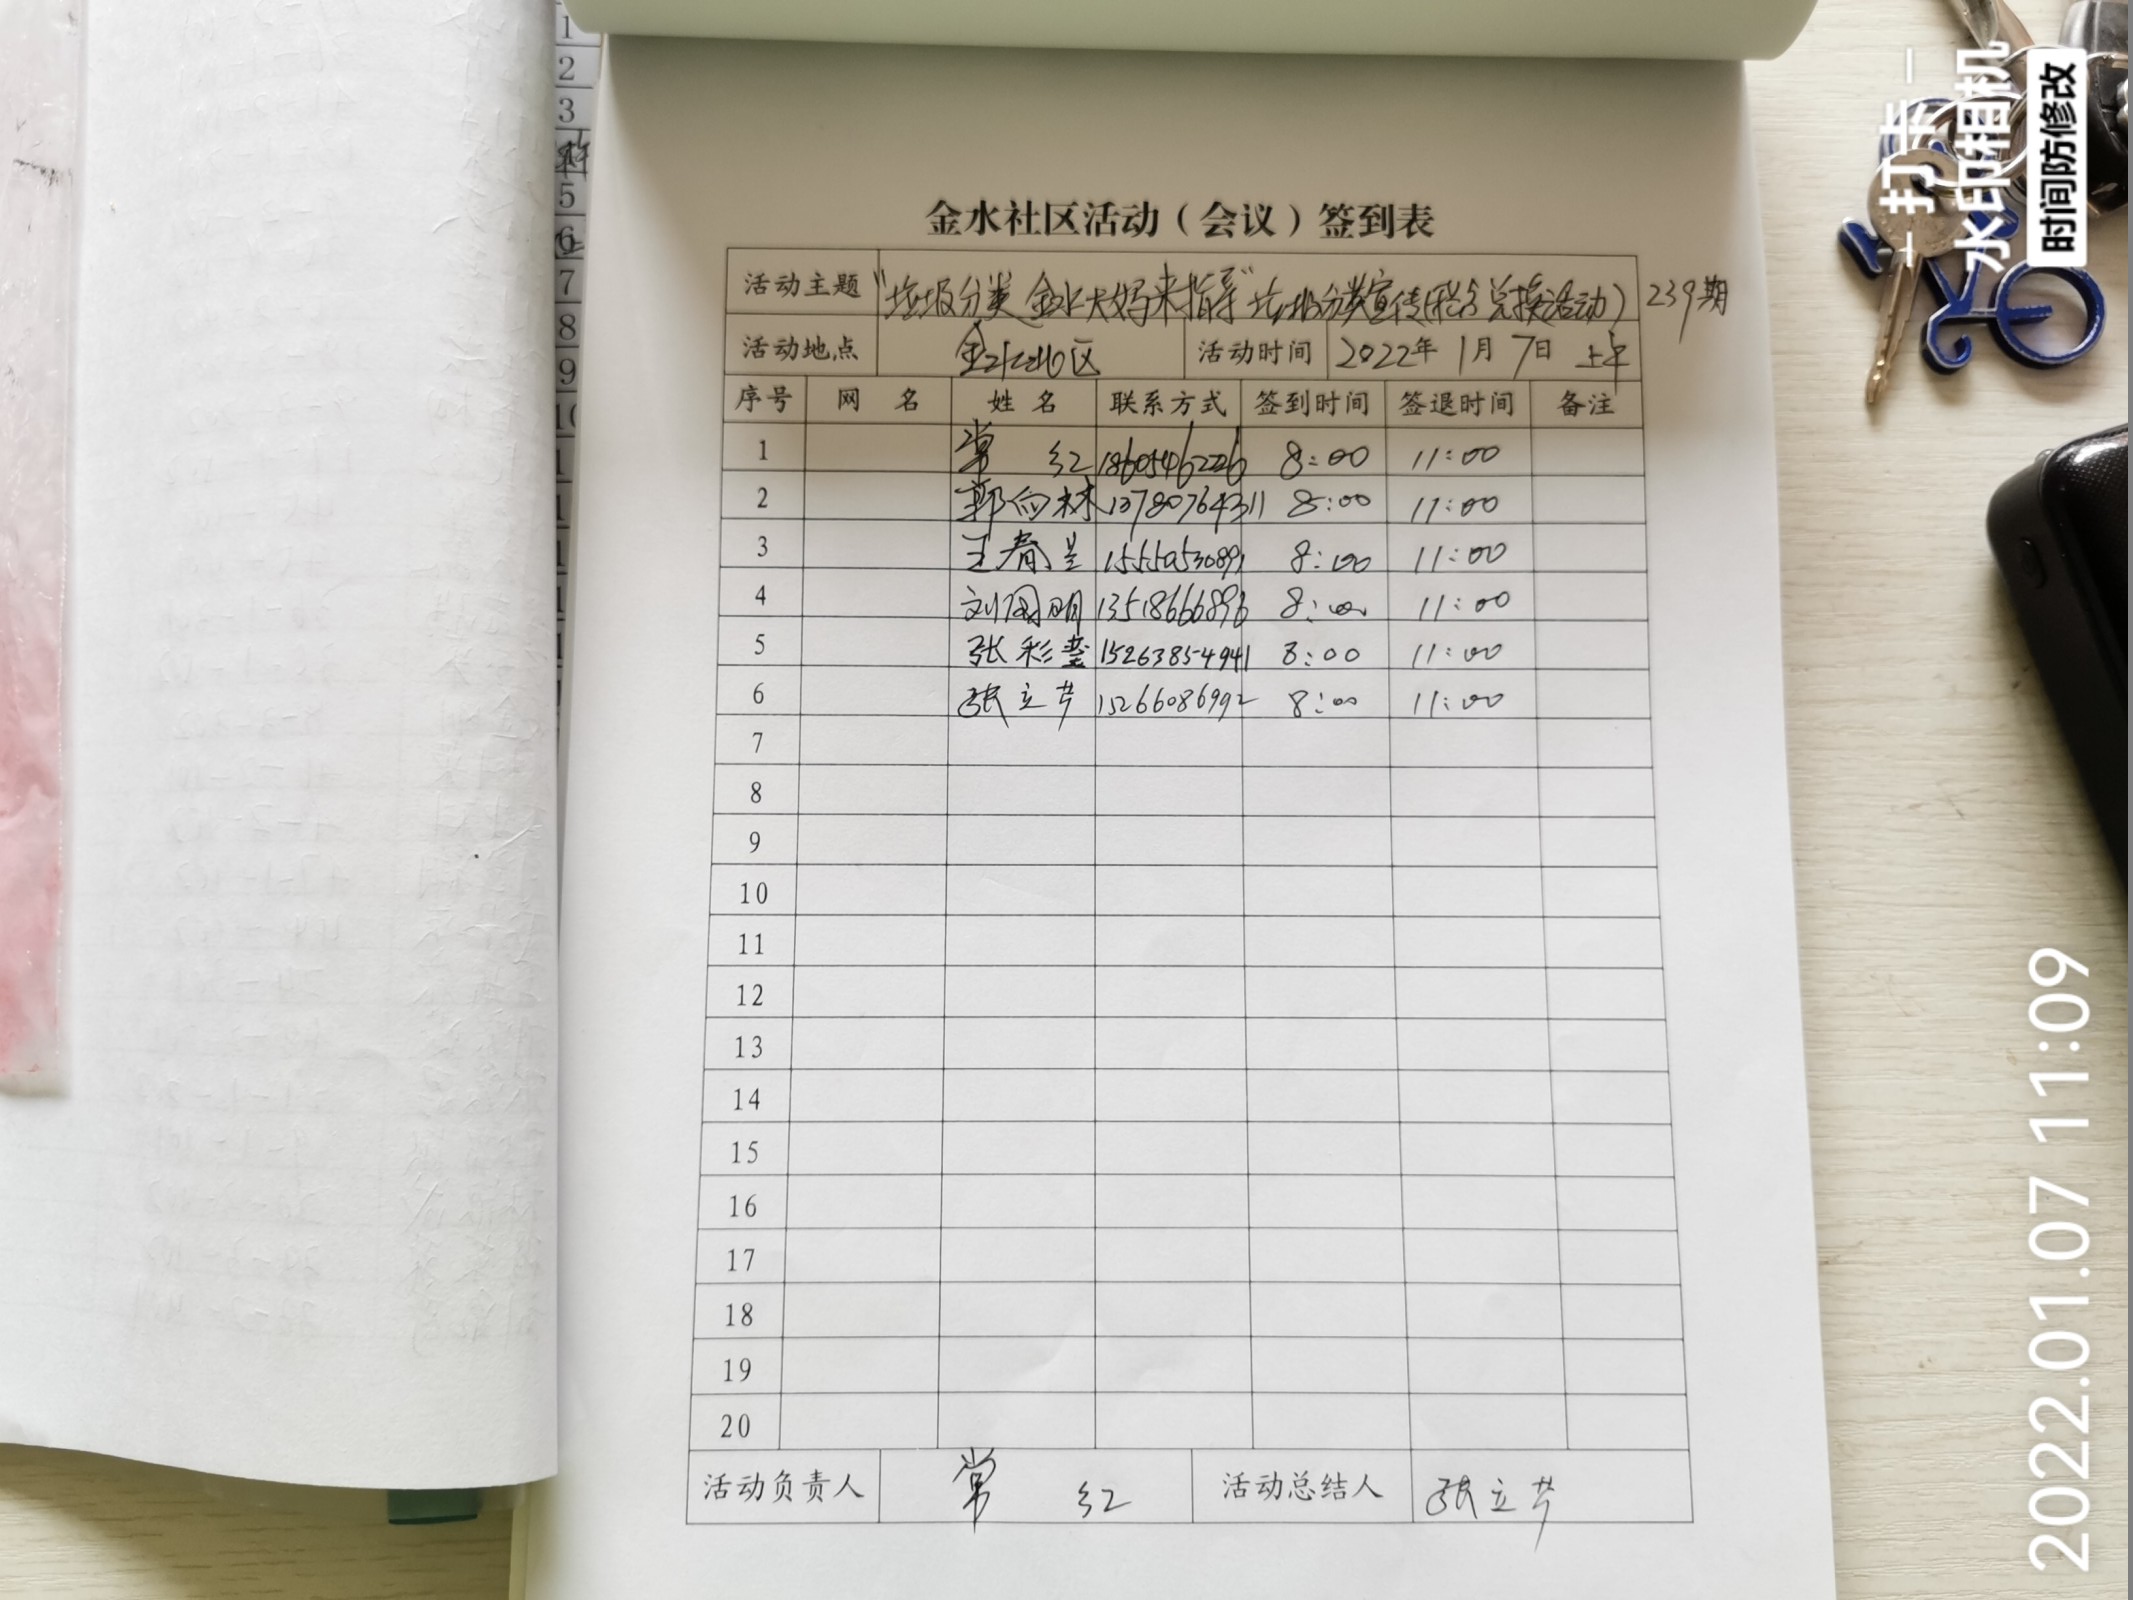 金水社区活动（会议）签到表
活动主题 "垃圾分类 金水大妈来指导" 垃圾分类宣传(积分兑换活动) 239期
活动地点 金水社区 活动时间 2022年 1月 7日 上午
序号 网 名 姓 名 联系方式 签到时间 签退时间 备注
1 常 红 18605462226 8:00 11:00
2 郭向林 13780764311 8:00 11:00
3 王春兰 15550530891 8:00 11:00
4 刘国明 13518666896 8:00 11:00
5 张彩莹 15263854941 8:00 11:00
6 张立芹 15266086992 8:00 11:00
7
8
9
10
11
12
13
14
15
16
17
18
19
20
活动负责人 常 红 活动总结人 张立芹
1
2
3
5
6
7
8
9
打卡
水印相机
时间防修改
2022.01.07 11:09